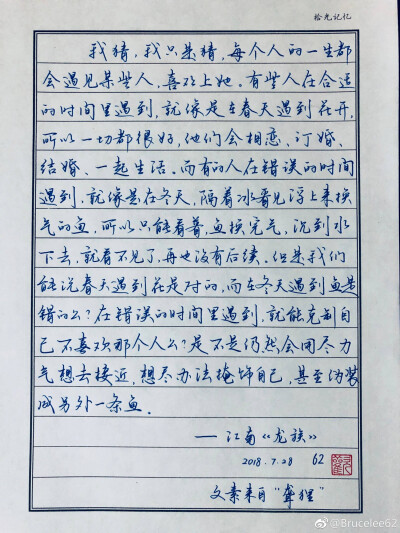 拾光记忆
我猜，我只是猜，每个人的一生都
会遇见某些人，喜欢上她。有些人在合适
的时间里遇到，就像是在春天遇到花开，
所以一切都很好，他们会相恋、订婚、
结婚、一起生活。而有的人在错误的时间
遇到，就像是在冬天，隔着冰看见浮上来换
气的鱼，所以只能看着，鱼换完气，沉到水
下去，就看不见了，再也没有后续。但是我们
能说春天遇到花是对的，而在冬天遇到鱼是
错的么？在错误的时间里遇到，就能克制自
己不喜欢那个人么？是不是仍然会用尽力
气想去接近，想尽办法掩饰自己，甚至伪装
成另外一条鱼。
——江南《龙族》
2018.7.28 62
文素来自“聋狸”
@Brucelee62